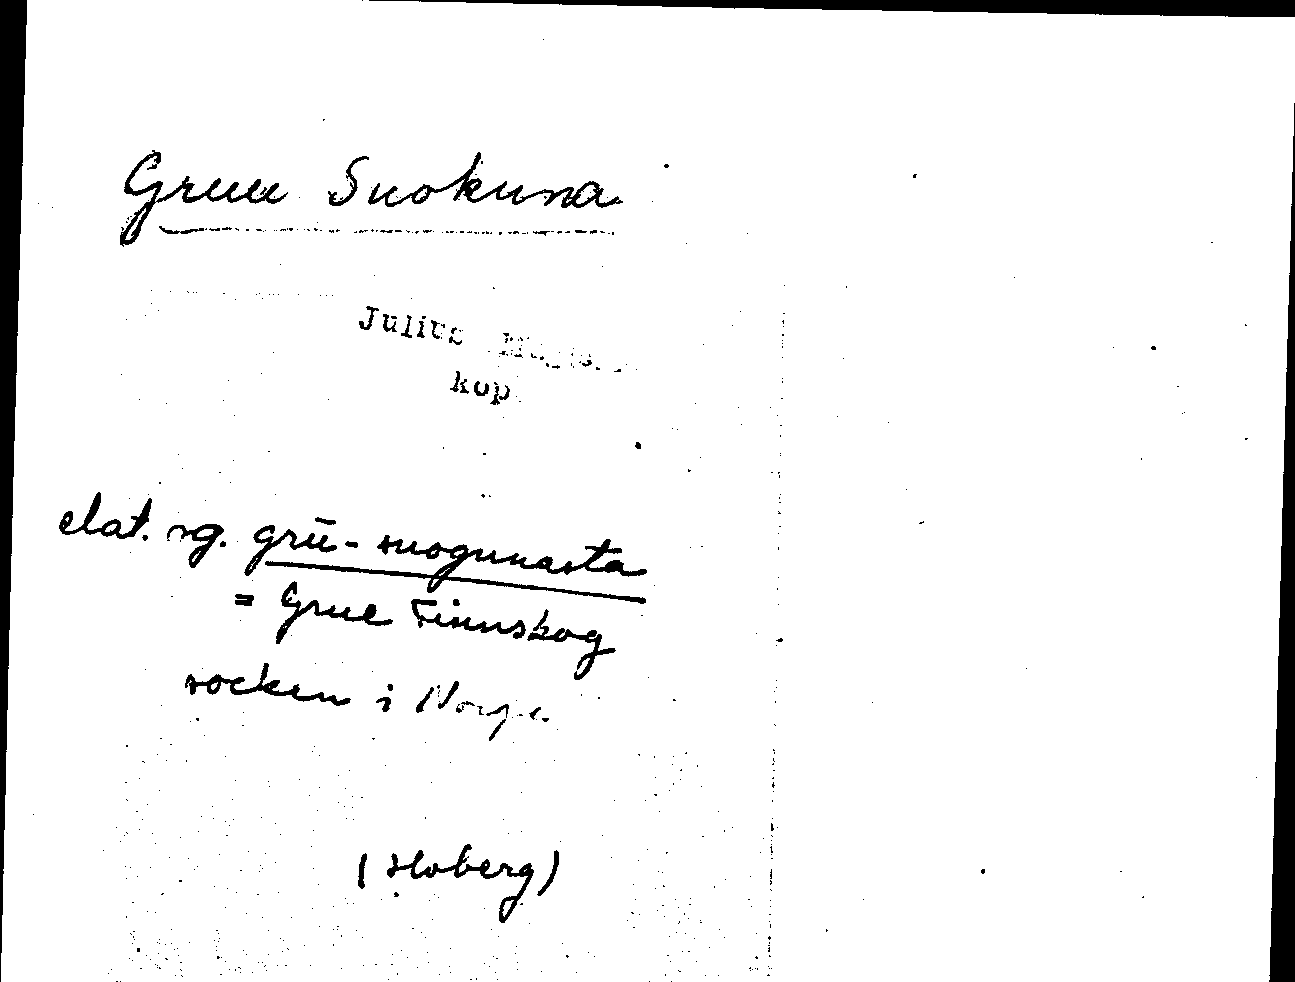 Gruu Suokuna
Julius
kop.
elat. sg. grū-suogunasta
= Grue Finnskog
socken i Norge
(Hoberg)